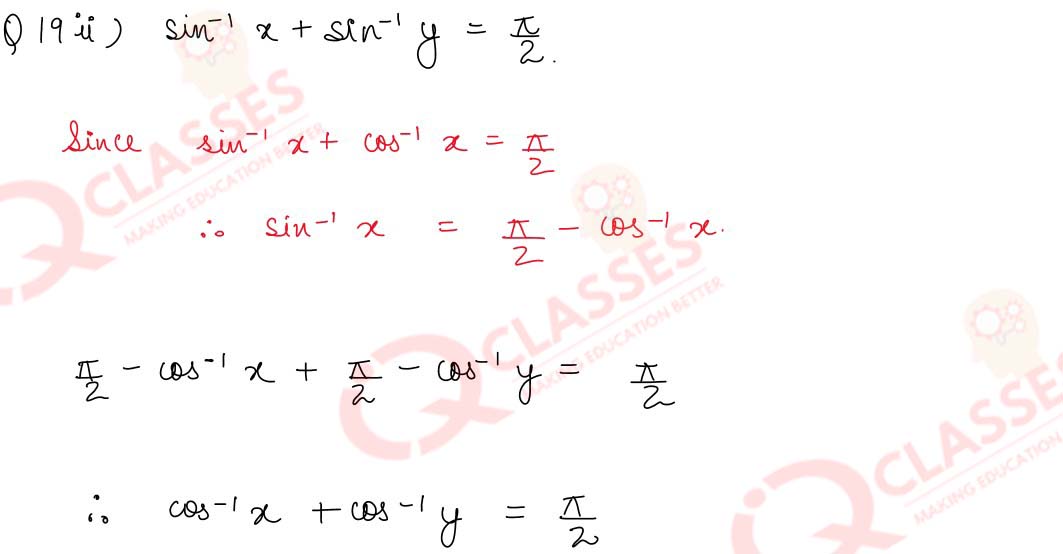 Q 19 ii) sin⁻¹ x + sin⁻¹ y = π/2.
Since sin⁻¹ x + cos⁻¹ x = π/2
∴ sin⁻¹ x = π/2 − cos⁻¹ x.
π/2 − cos⁻¹ x + π/2 − cos⁻¹ y = π/2
∴ cos⁻¹ x + cos⁻¹ y = π/2
CLASSES
MAKING EDUCATION BETTER
CLASSES
MAKING EDUCATION BETTER
CLASSES
MAKING EDUCATION